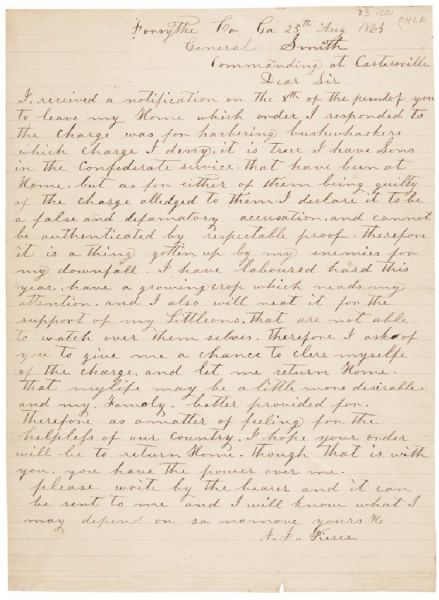 Forsythe Co Ga 25th Aug 1864
General Smith
Commanding at Cartersville
Dear Sir
I received a notification on the 8th of the present of you
to leave my Home which order I responded to
the Charge was for harbering bushwhackers
which Charge I deny, it is true I have Sons
in the Confederate service that have been at
Home. but as for either of them being guilty
of the charge alledged to them I declare it to be
a false and defamatory accusation. and cannot
be authenticated by respectable proof. therefore
it is a thing gotten up by my enemies for
my downfall. I have laboured hard this
year. have a growing crop which neads my
attention. and I also will neat it for the
support of my Littleons. that are not able
to watch over them selves. therefore I ask of
you to give me a chance to clere myselfe
of the charge. and let me return Home.
that my life may be a little more desirable
and my Famoly. better provided for.
therefore as a matter of feeling for the
helpless of our country. I hope your order
will be to return Home. though that is with
you. you have the power over me.
please write by the bearer and it can
be sent to me and I will know what I
may depend on so nomore yours &c
Pierce